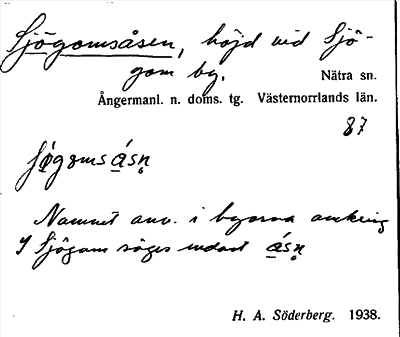 Sjögomsåsen, höjd vid Sjö-
gom by.
Nätra sn.
Ångermanl. n. doms. tg. Västernorrlands län.
87
ásn̥
Namnet anv. i byarna omkring
I Sjögom säges endast ásn̥
H. A. Söderberg. 1938.